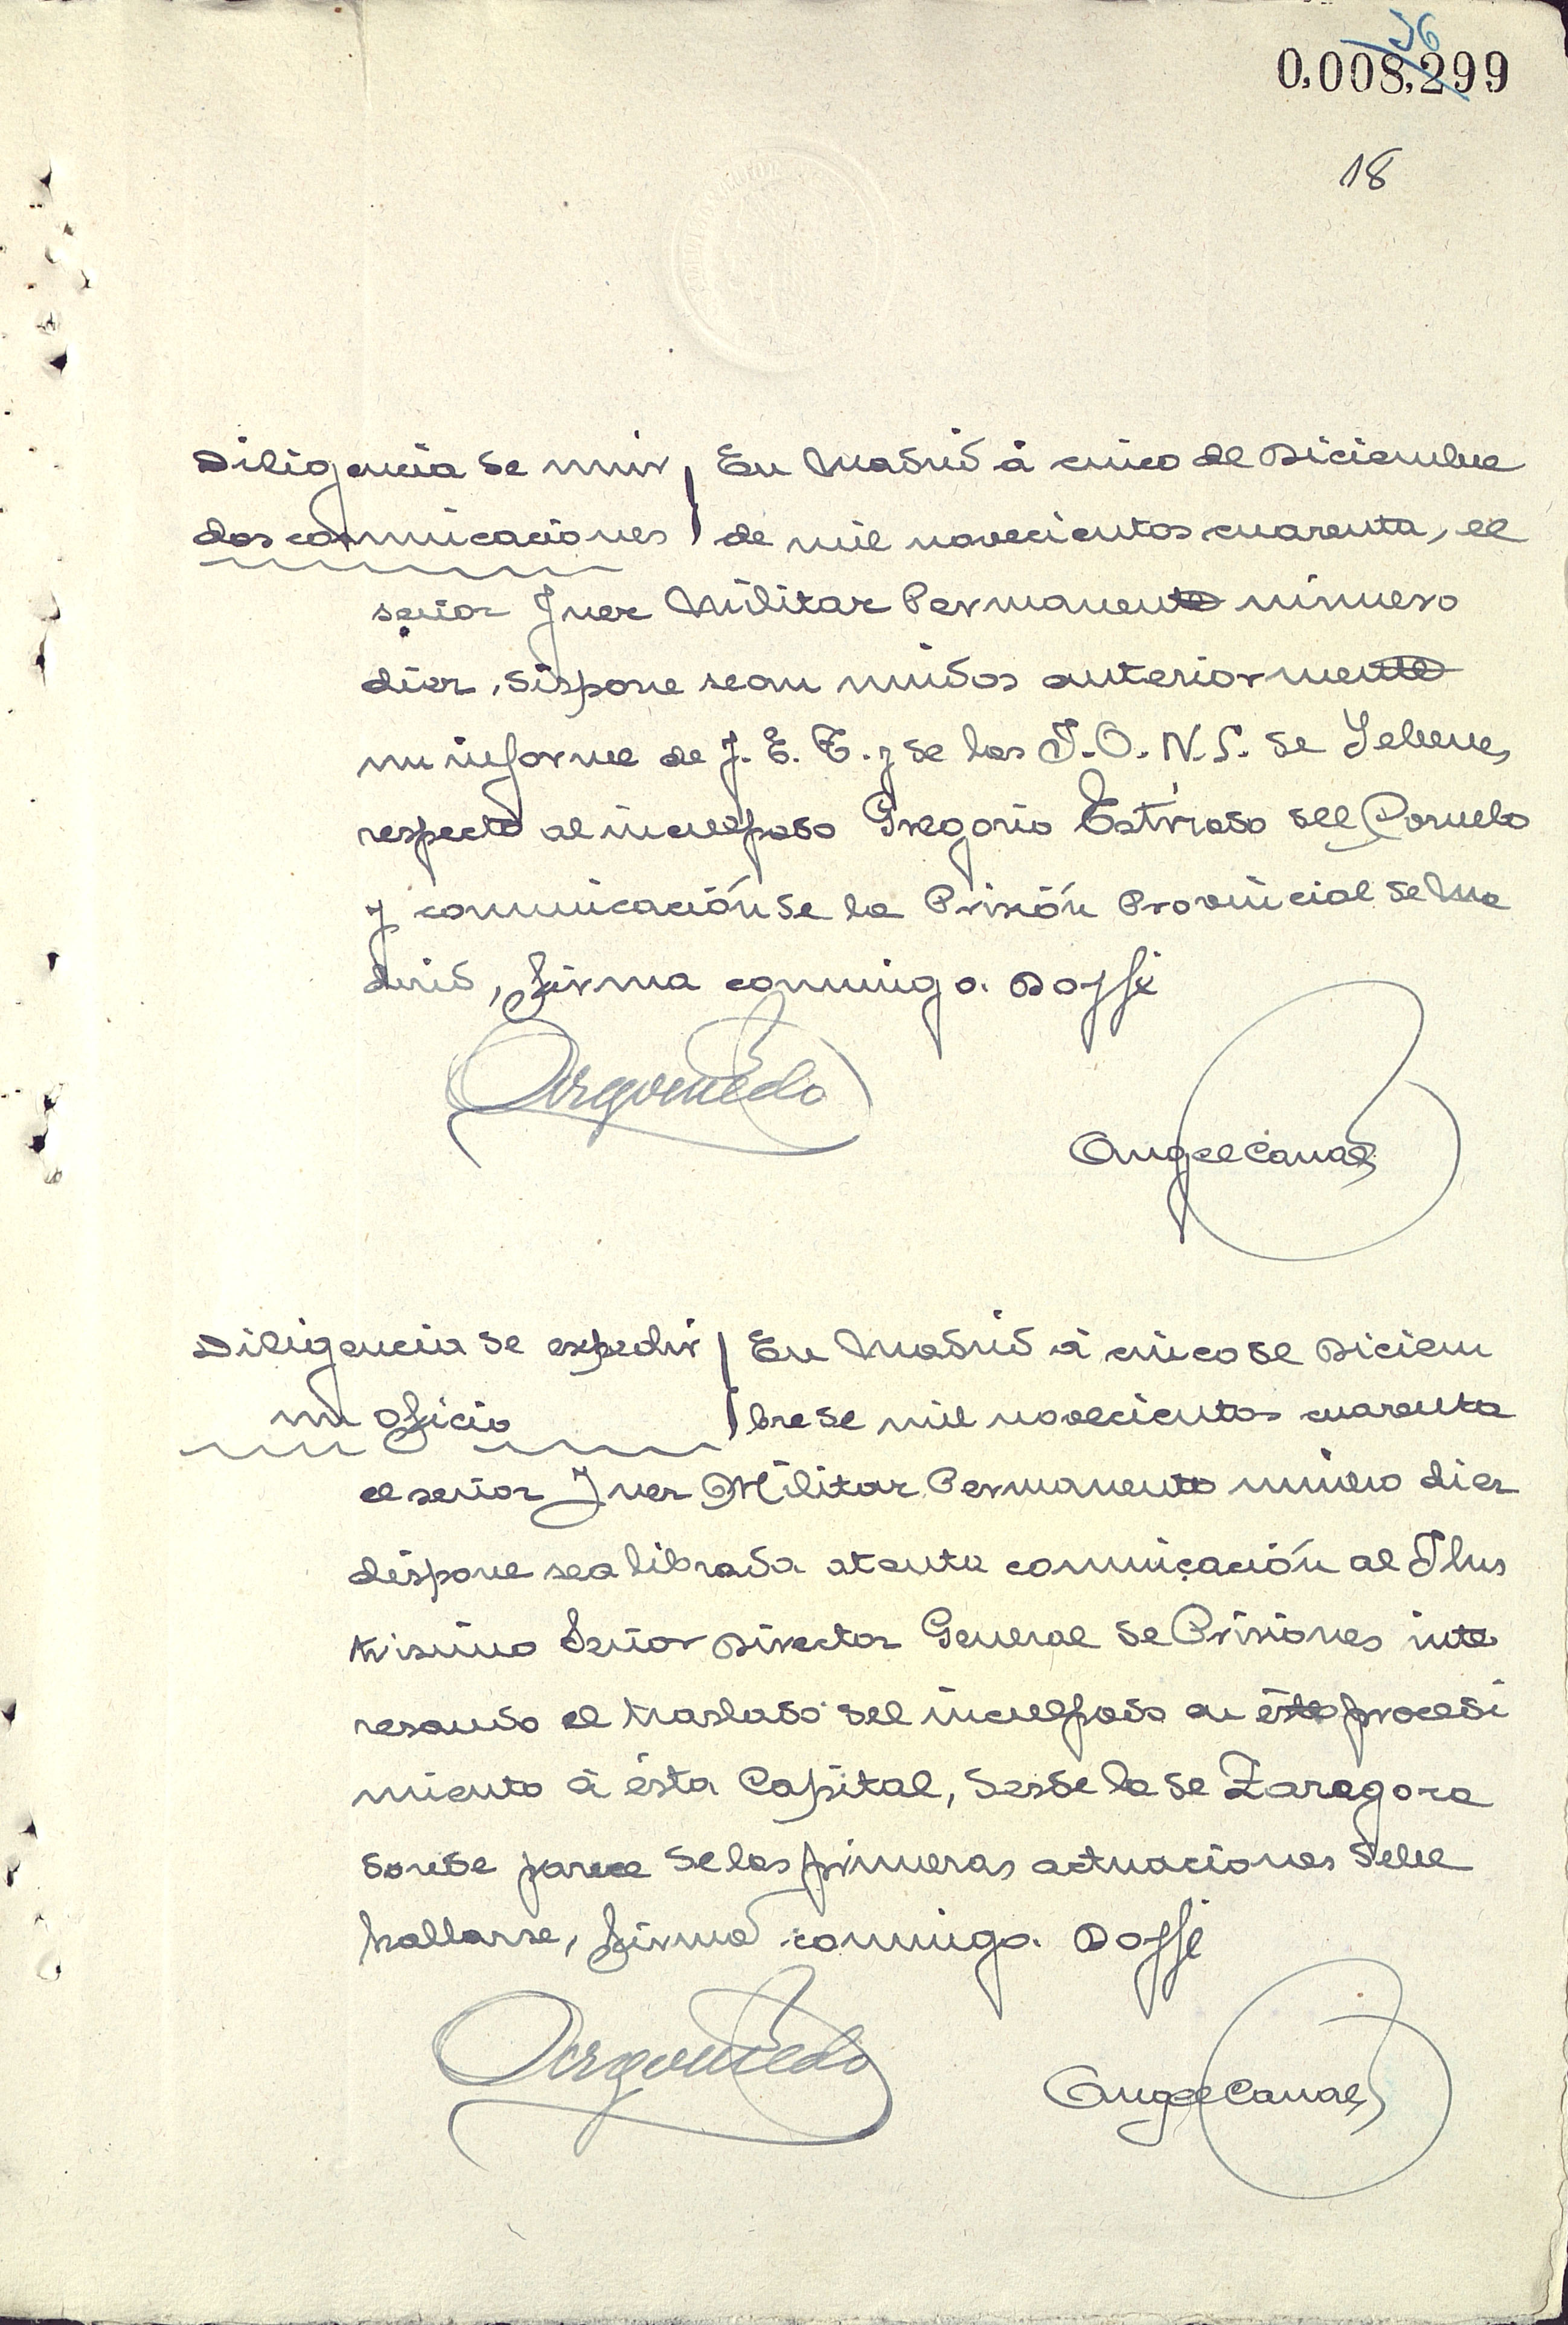 36
0,008,299
18
Diligencia de unir / En Madrid á cinco de Diciembre
dos comunicaciones / de mil novecientos cuarenta, el
señor Juez Militar Permanente número
diez, dispone sean unidos anteriormente
un informe de F. E. T. y de las J.O.N.S. de Yebenes,
respecto al inculpado Gregorio Estirado del
y comunicación de la Prisión Provincial de Ma
drid, firma conmigo. Doy fé
Argomedo
Angel Canal
Diligencia de expedir / En Madrid á cinco de Diciem
un oficio / bre de mil novecientos cuarenta
el señor Juez Militar Permanente número diez
dispone sea librada atenta comunicación al Ilus
trisimo Señor Director General de Prisiones inte
resando el traslado del inculpado en éste procedi
miento á ésta Capital, desde la de Zaragoza
donde parece de las primeras actuaciones debe
hallarse, firma conmigo. Doy fé
Argomedo
Angel Canal